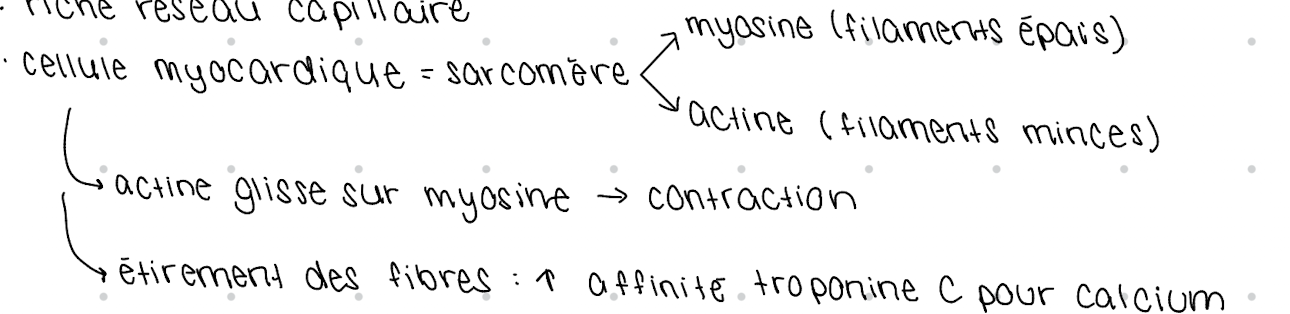 · riche réseau capillaire
· cellule myocardique = sarcomère
myosine (filaments épais)
actine (filaments minces)
→ actine glisse sur myosine → contraction
→ étirement des fibres : ↑ affinité troponine C pour calcium